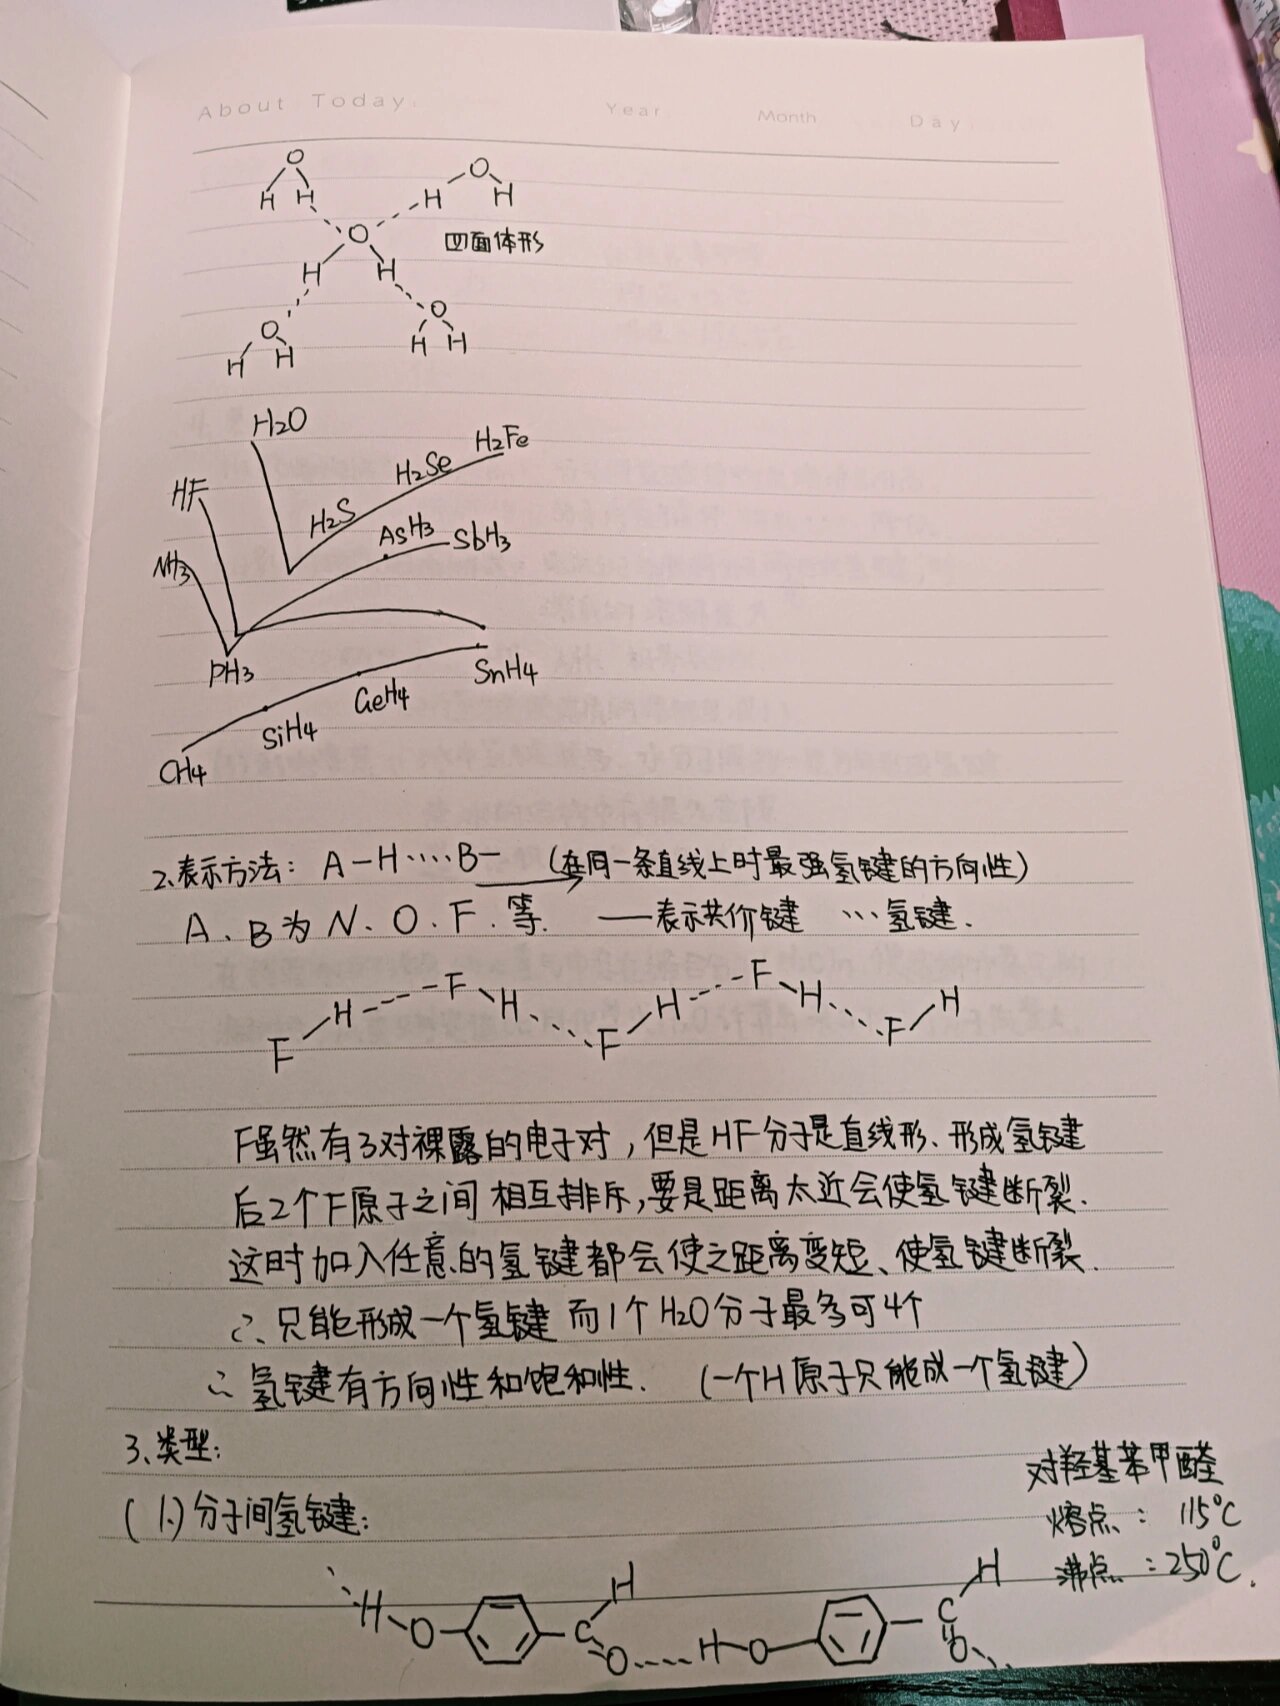 About Today.
Year Month Day
O O
H H H H
O 四面体形
H H
O O
H H H H
H2O
H2Fe
H2Se
HF
H2S
AsH3 SbH3
NH3
PH3
SnH4
GeH4
SiH4
CH4
2、表示方法: A-H····B- (在同一条直线上时最强氢键的方向性)
A、B为N、O、F、等. —表示共价键 ···氢键.
H---F H H---F H H
F F F
F虽然有3对裸露的电子对,但是HF分子是直线形、形成氢键
后2个F原子之间相互排斥,要是距离太近会使氢键断裂.
这时加入任意的氢键都会使之距离变短、使氢键断裂.
∴只能形成一个氢键而1个H2O分子最多可4个
∴氢键有方向性和饱和性. (一个H原子只能成一个氢键)
3、类型:
对羟基苯甲醛
(1.)分子间氢键:
熔点: 115℃
沸点:250℃.
H H
H-O C O----H-O C O